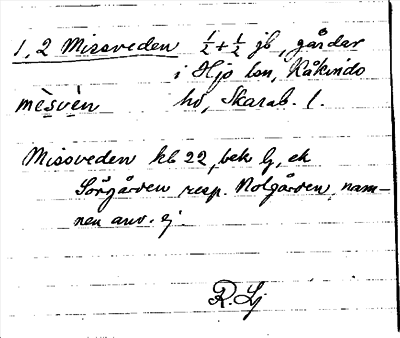 1, 2 Missveden ½ + ½ jb, gårdar
i Hjo lsn, Kåkinds
mèsvèn hd, Skarab. l.
Missveden kb 22, bek G, ek
Sörgården resp. Nolgården, nam-
nen anv. ej.
R. Lj